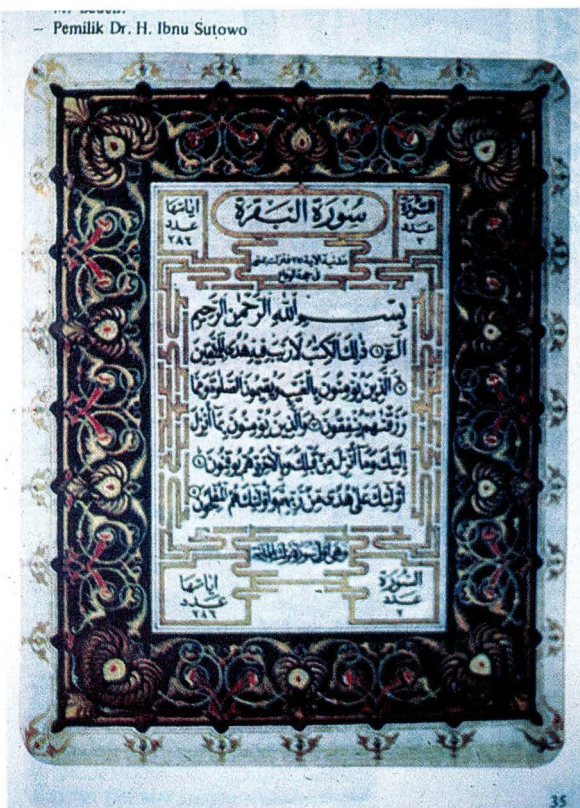 – Pemilik Dr. H. Ibnu Sutowo
السورة
عدد
٢
سورة البقرة
اياتها
عدد
٢٨٦
بسم الله الرحمن الرحيم
الٓمّٓ ۝ ذٰلِكَ الْكِتٰبُ لَا رَيْبَ فِيْهِ هُدًى لِّلْمُتَّقِيْنَ
۝ الَّذِيْنَ يُؤْمِنُوْنَ بِالْغَيْبِ وَيُقِيْمُوْنَ الصَّلٰوةَ وَمِمَّا
رَزَقْنٰهُمْ يُنْفِقُوْنَ ۝ وَالَّذِيْنَ يُؤْمِنُوْنَ بِمَآ أُنْزِلَ
إِلَيْكَ وَمَآ أُنْزِلَ مِنْ قَبْلِكَ وَبِالْاٰخِرَةِ هُمْ يُوْقِنُوْنَ ۝
أُولٰٓئِكَ عَلٰى هُدًى مِّنْ رَّبِّهِمْ وَأُولٰٓئِكَ هُمُ الْمُفْلِحُوْنَ ۝
السورة
عدد
٢
اياتها
عدد
٢٨٦
35